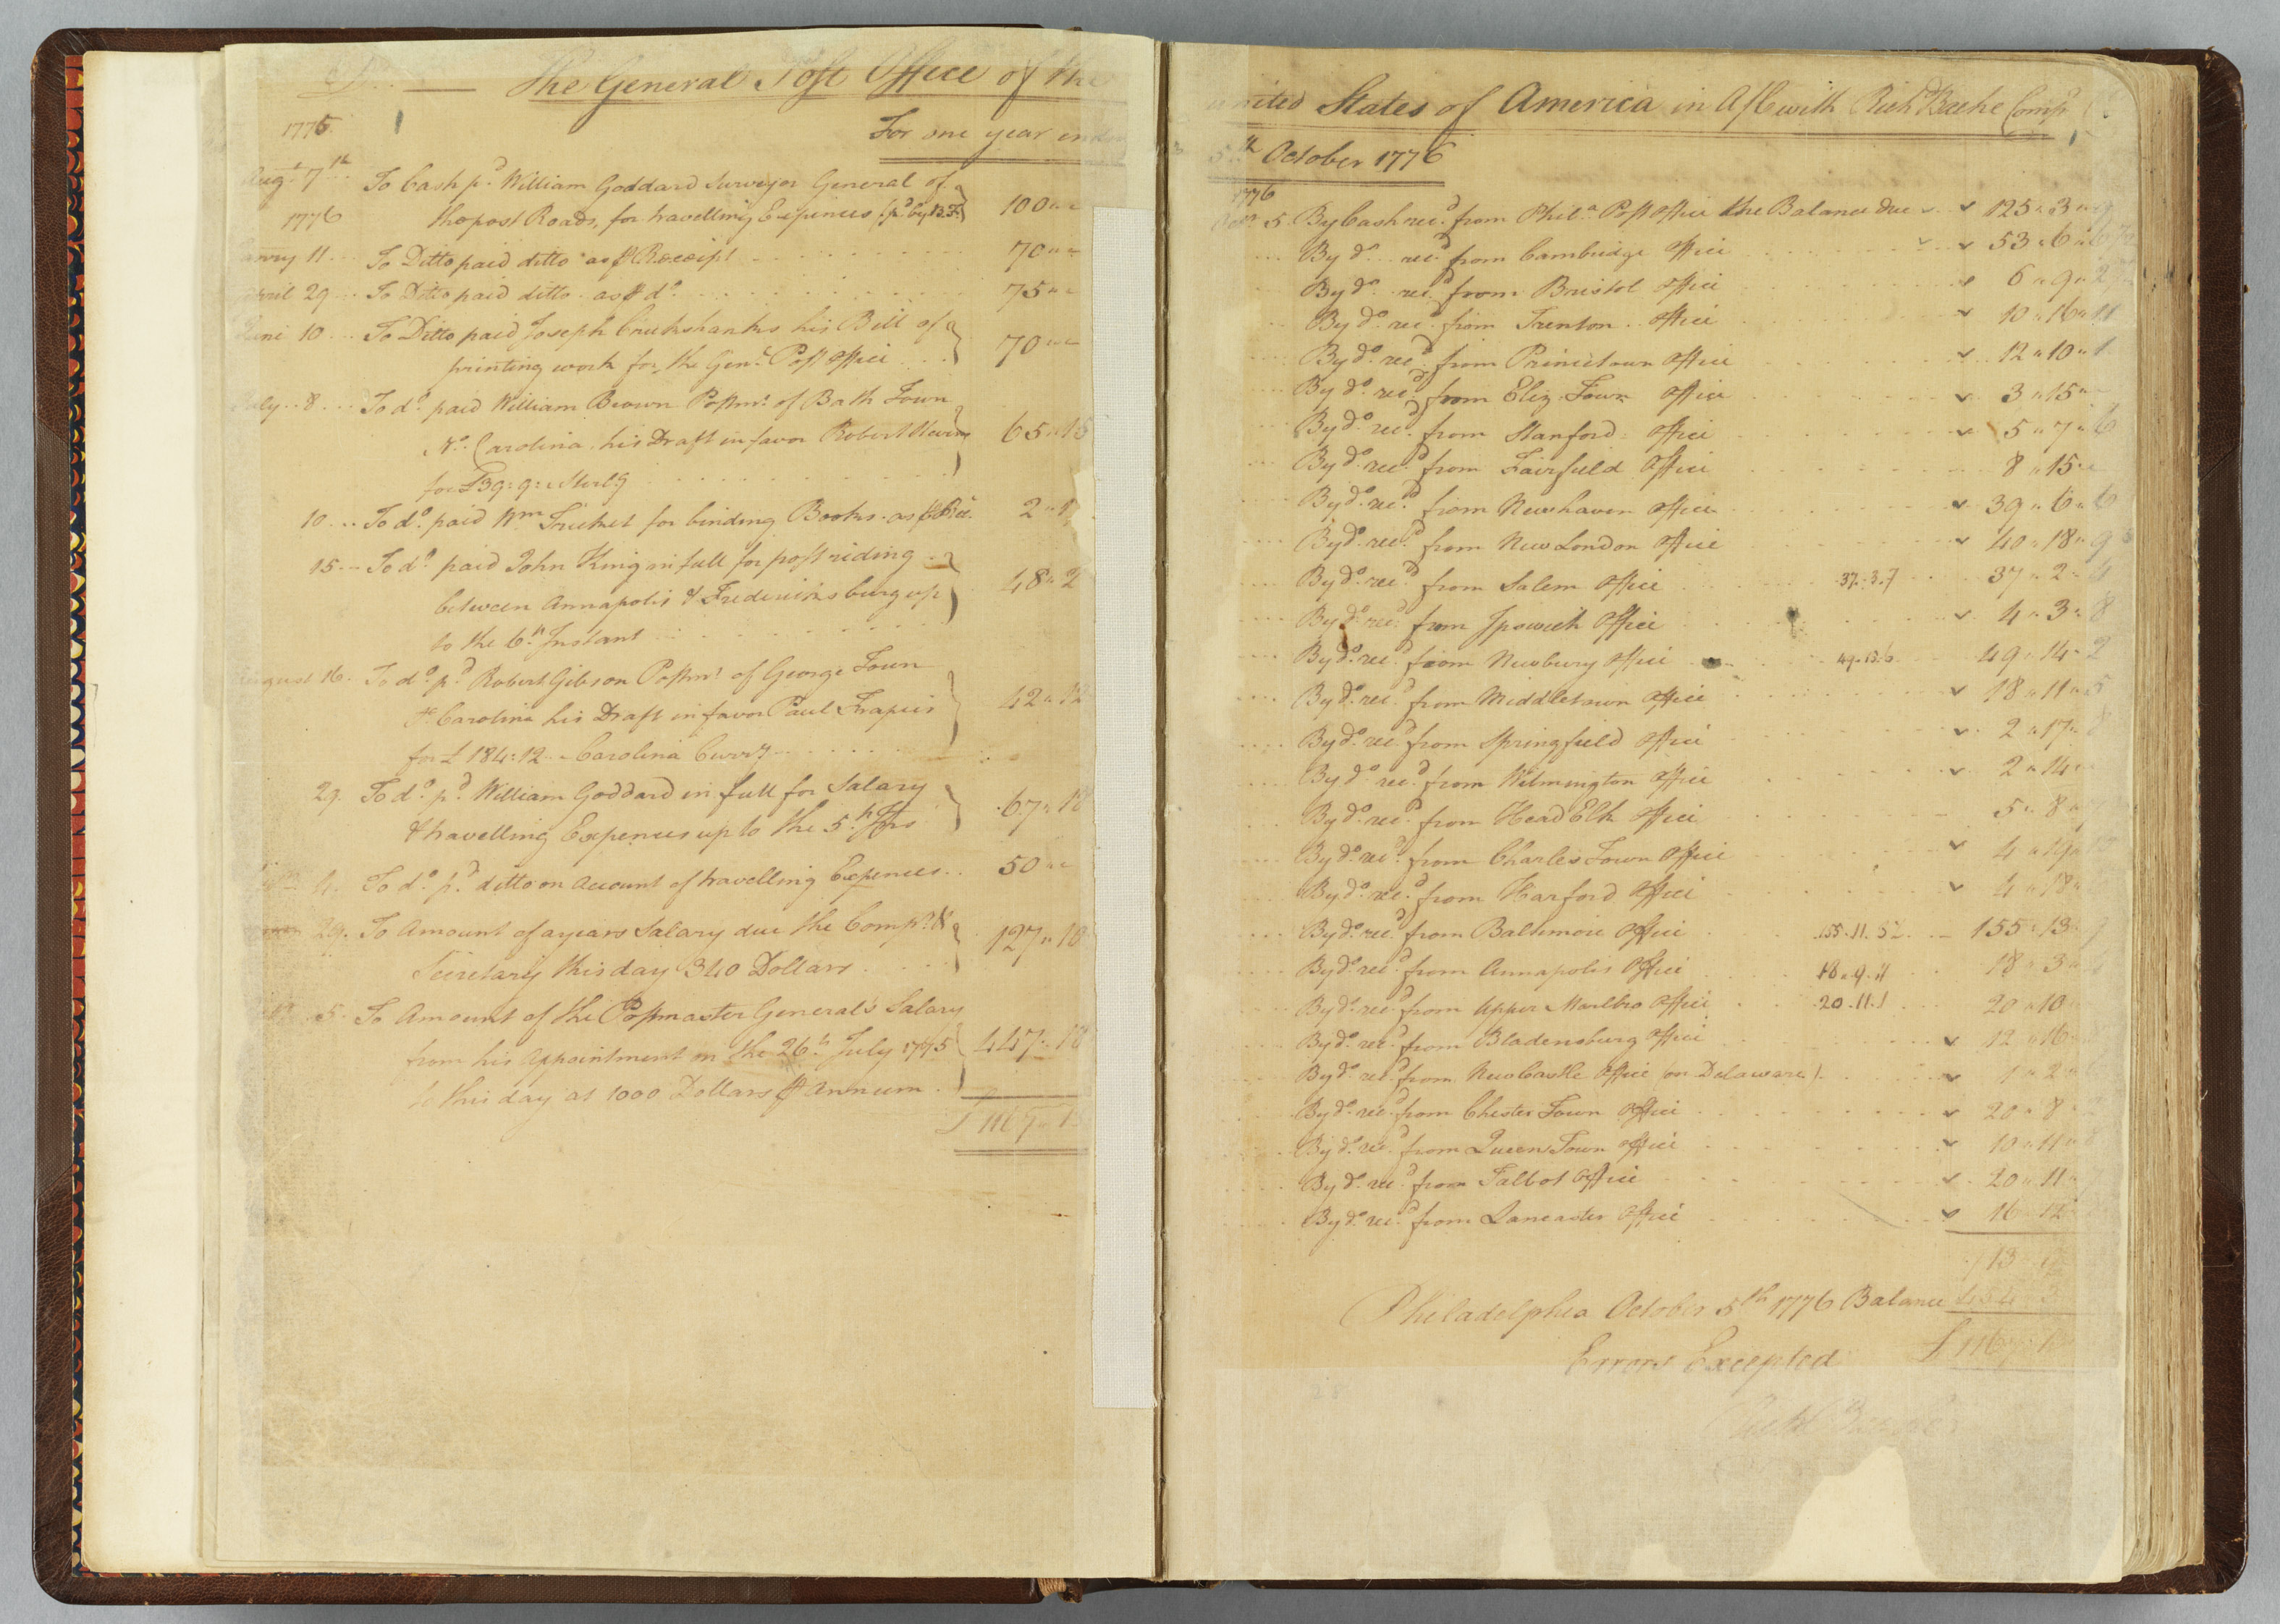 Dr. The General Post Office of the
1775
For one year
Augt. 7th To Cash pd. William Goddard Surveyor General of
1776 the post Roads, for travelling Expences (pd. by B.F.) 100 " "
11 To Ditto paid ditto as ₱ Receipt 70 " "
April 29 To Ditto paid ditto as ₱ do. 75 " "
June 10 To Ditto paid Joseph Cruikshanks his Bill of
printing work for the Genl. Post Office 70 " "
July 8 To do. paid William Brown Postmr. of Bath Town
No. Carolina his Draft in favor Robert
for £39:9: Sterlg 65 " 15
10 To do. paid Wm. Tricket for binding Books as ₱ Rec. 2 "
15 To do. paid John King in full for post riding
between Annapolis & Fredericksburg up 48 " 2
to the 6th. Instant
August 16. To do. pd. Robert Gibson Postmr. of George Town
So. Carolina his Draft in favor Paul Trapier 42 " 12
for £184:12 Carolina Curry
29. To do. pd. William Goddard in full for Salary
& travelling Expences up to the 5th. Ins 67 " 18
4. To do. pd. ditto on Account of travelling Expences 50 " "
29. To Amount of a years Salary due the Compr. &
Secretary this day 340 Dollars 127 " 10
5. To Amount of the Postmaster General's Salary
from his Appointment on the 26th. July 1775 447 " 18
to this day at 1000 Dollars ₱ Annum
£ 1167 "
United States of America in A/C with Richd. Bache Compr.
5th October 1776
1776
5. By Cash recd. from Phila. Post Office the Balance due 125 " 3 " 9
By do. recd. from Cambridge Office 53 " 6 " 6
By do. recd. from Bristol Office 6 " 9 " 2
By do. recd. from Trenton Office 10 " 16 " 11
By do. recd. from Princetown Office 12 " 10 " 1
By do. recd. from Eliz. Town Office 3 " 15 "
By do. recd. from Stanford Office 5 " 7 " 6
By do. recd. from Fairfield Office 8 " 15 "
By do. recd. from Newhaven Office 39 " 6 " 6
By do. recd. from New London Office 40 " 18 " 9
By do. recd. from Salem Office 37..3.7 37 " 2 " 4
By do. recd. from Ipswich Office 4 " 3 " 8
By do. recd. from Newbury Office 49.13.6 49 " 14 " 2
By do. recd. from Middletown Office 18 " 11 " 5
By do. recd. from Springfield Office 2 " 17 " 8
By do. recd. from Wilmington Office 2 " 14 "
By do. recd. from Head Elk Office 5 " 8 "
By do. recd. from Charles Town Office 4 " 19 "
By do. recd. from Harford Office 4 " 18 "
By do. recd. from Baltimore Office 155.11.5½ 155 " 13 " 7
By do. recd. from Annapolis Office 18.9.11 18 " 3 "
By do. recd. from Upper Marlbro Office 20.11.1 20 " 10
By do. recd. from Bladensburg Office 12 " 16
By do. recd. from New Castle Office (on Delaware) 1 " 2 "
By do. recd. from Chester Town Office 20 " 8
By do. recd. from Queens Town Office 10 " 11 " 8
By do. recd. from Talbot Office 20 " 11 "
By do. recd. from Lancaster Office 16 " 12
713
Philadelphia October 5th 1776 Balance 454
Errors Excepted £ 1167
Richd Bache